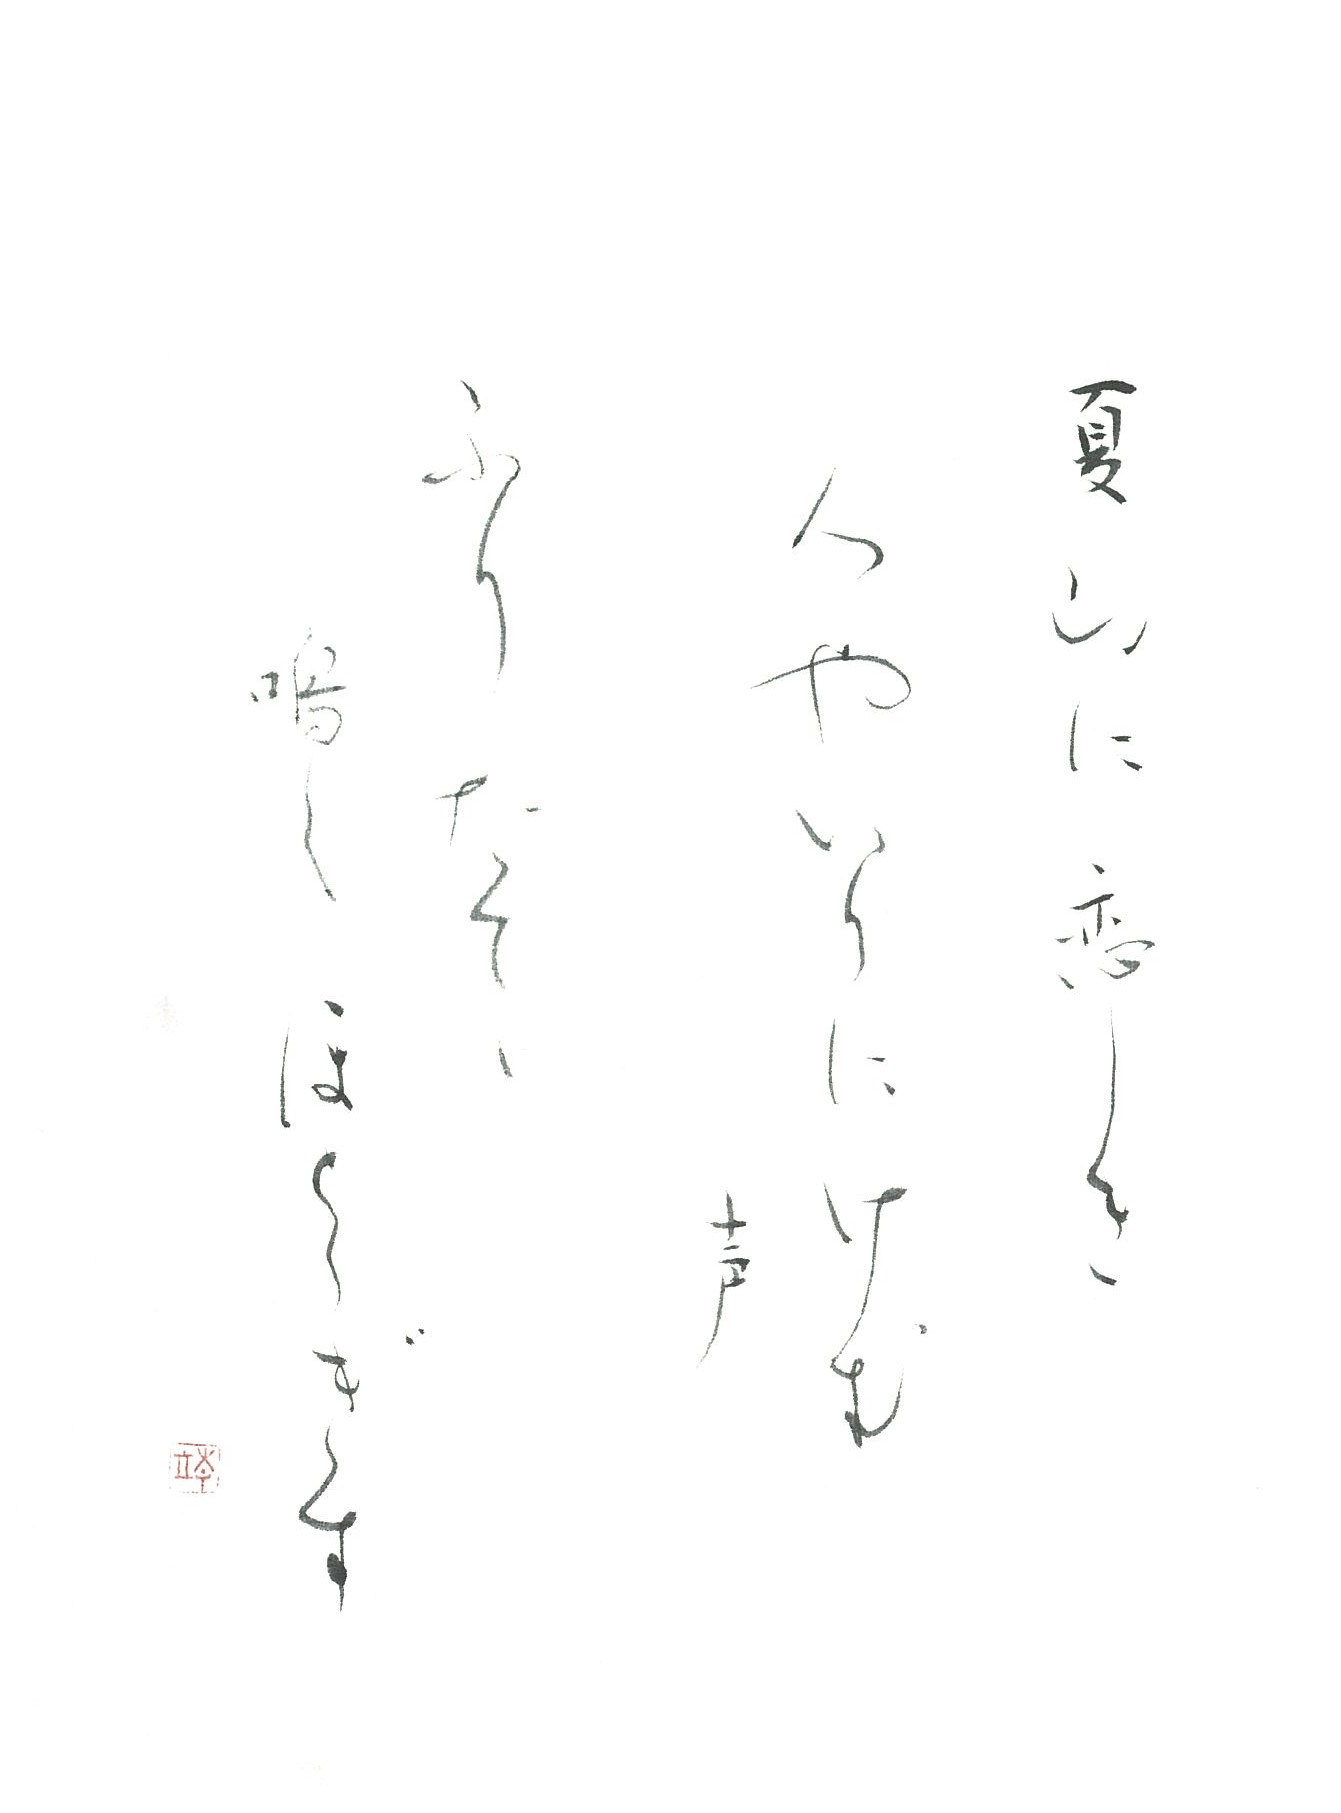 夏山に恋しき
人やいりにけむ
声
ふりたてて
鳴くほとゝぎす